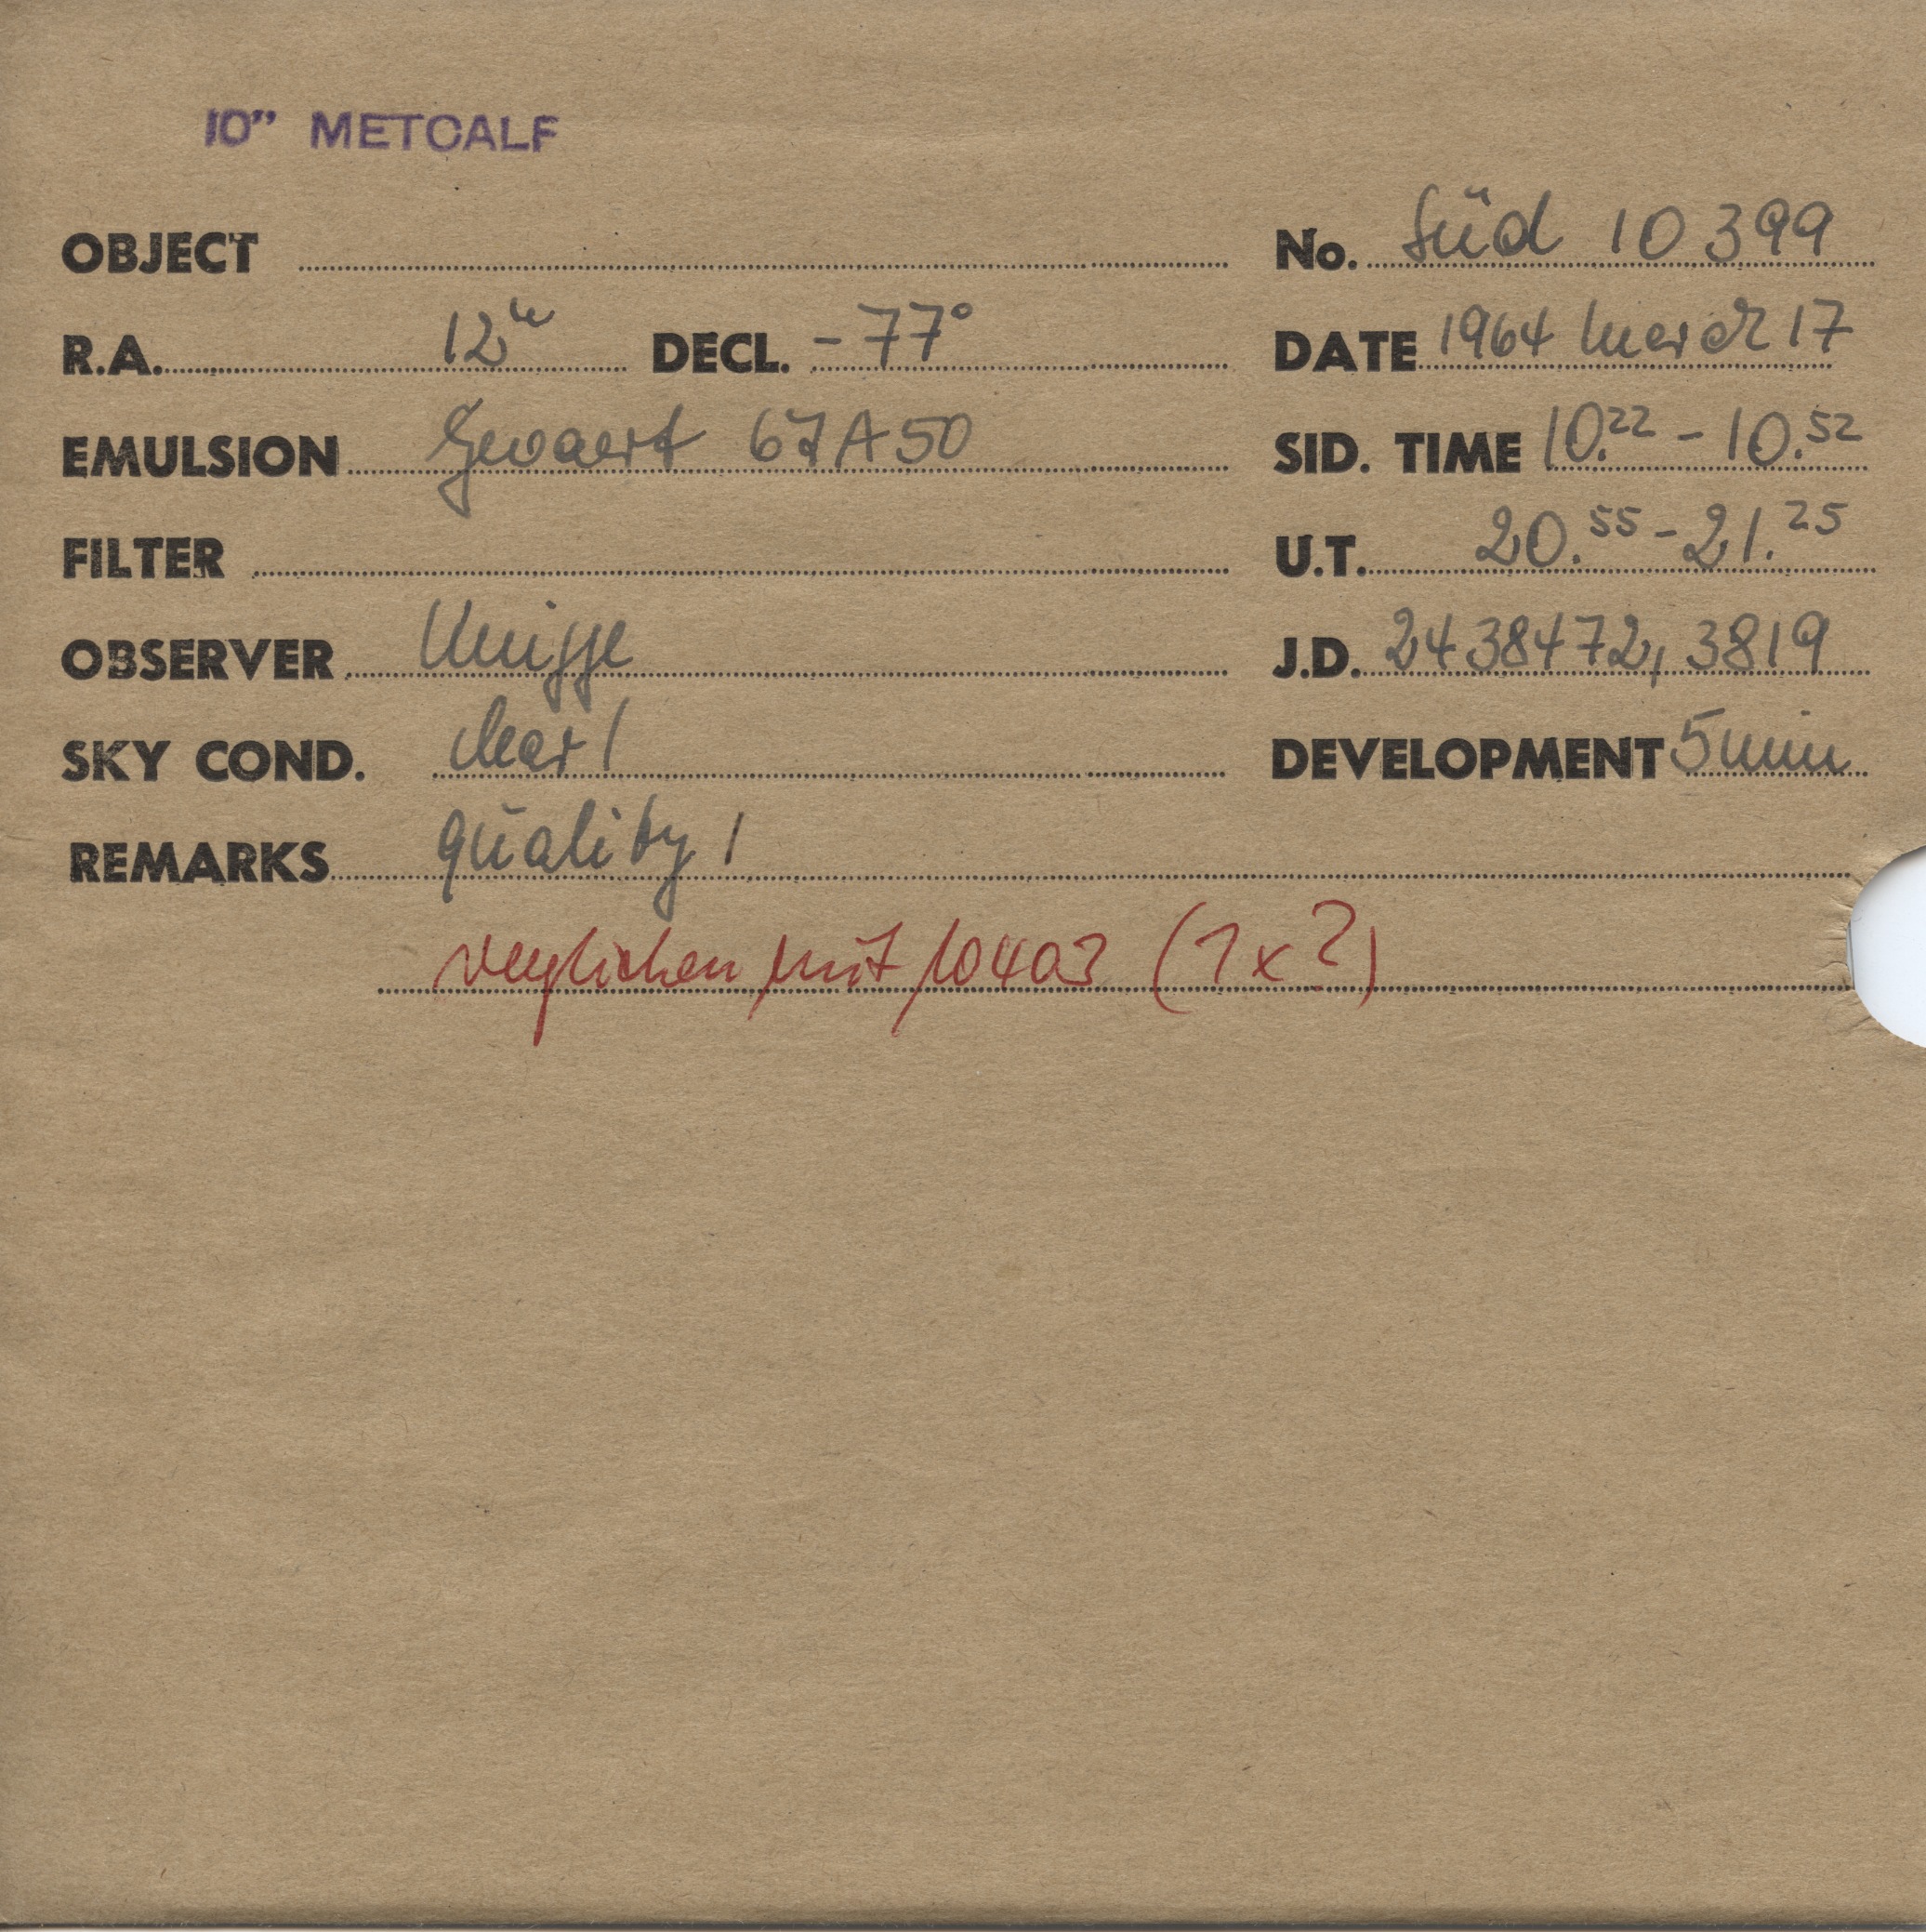 10" METCALF
OBJECT No. Süd 10399
R.A. 12h DECL. -77° DATE 1964 March 17
EMULSION Gevaert 67A50 SID. TIME 10.22 - 10.52
FILTER U.T. 20.55 - 21.25
OBSERVER J.D. 2438472,3819
SKY COND. clear 1 DEVELOPMENT 5 min
REMARKS quality 1
verglichen mit 10403 (1x?)